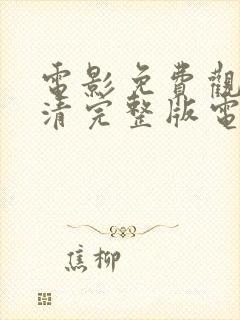 電影免費觀
清完整版電
焦柳